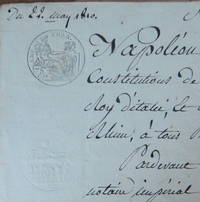 Du 22. may 1810.
Napoléon
Constitutions de
Roy d'italie, et
à tous
Pardevant
notaire impérial